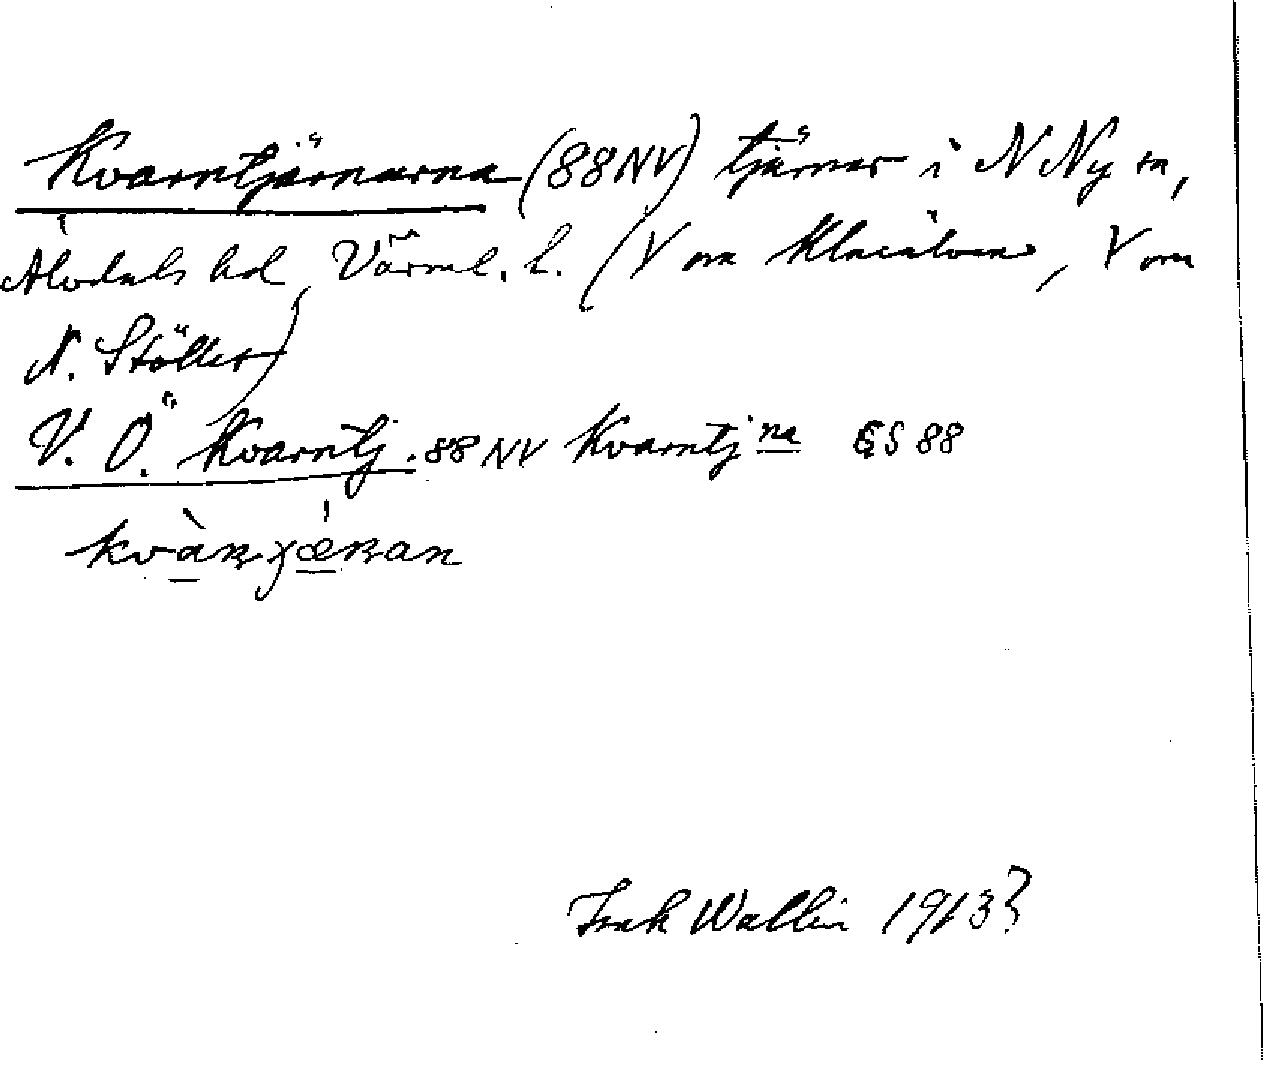 Kvarntjärnarna (88NV) tjärnar i N Ny sn,
Älvdals hd Värml. l. (V om Klarälven, V om
N. Stöllet)
V. Ö. Kvarntj. 88 NV Kvarntjna GS 88
Isak Wallin 1913?